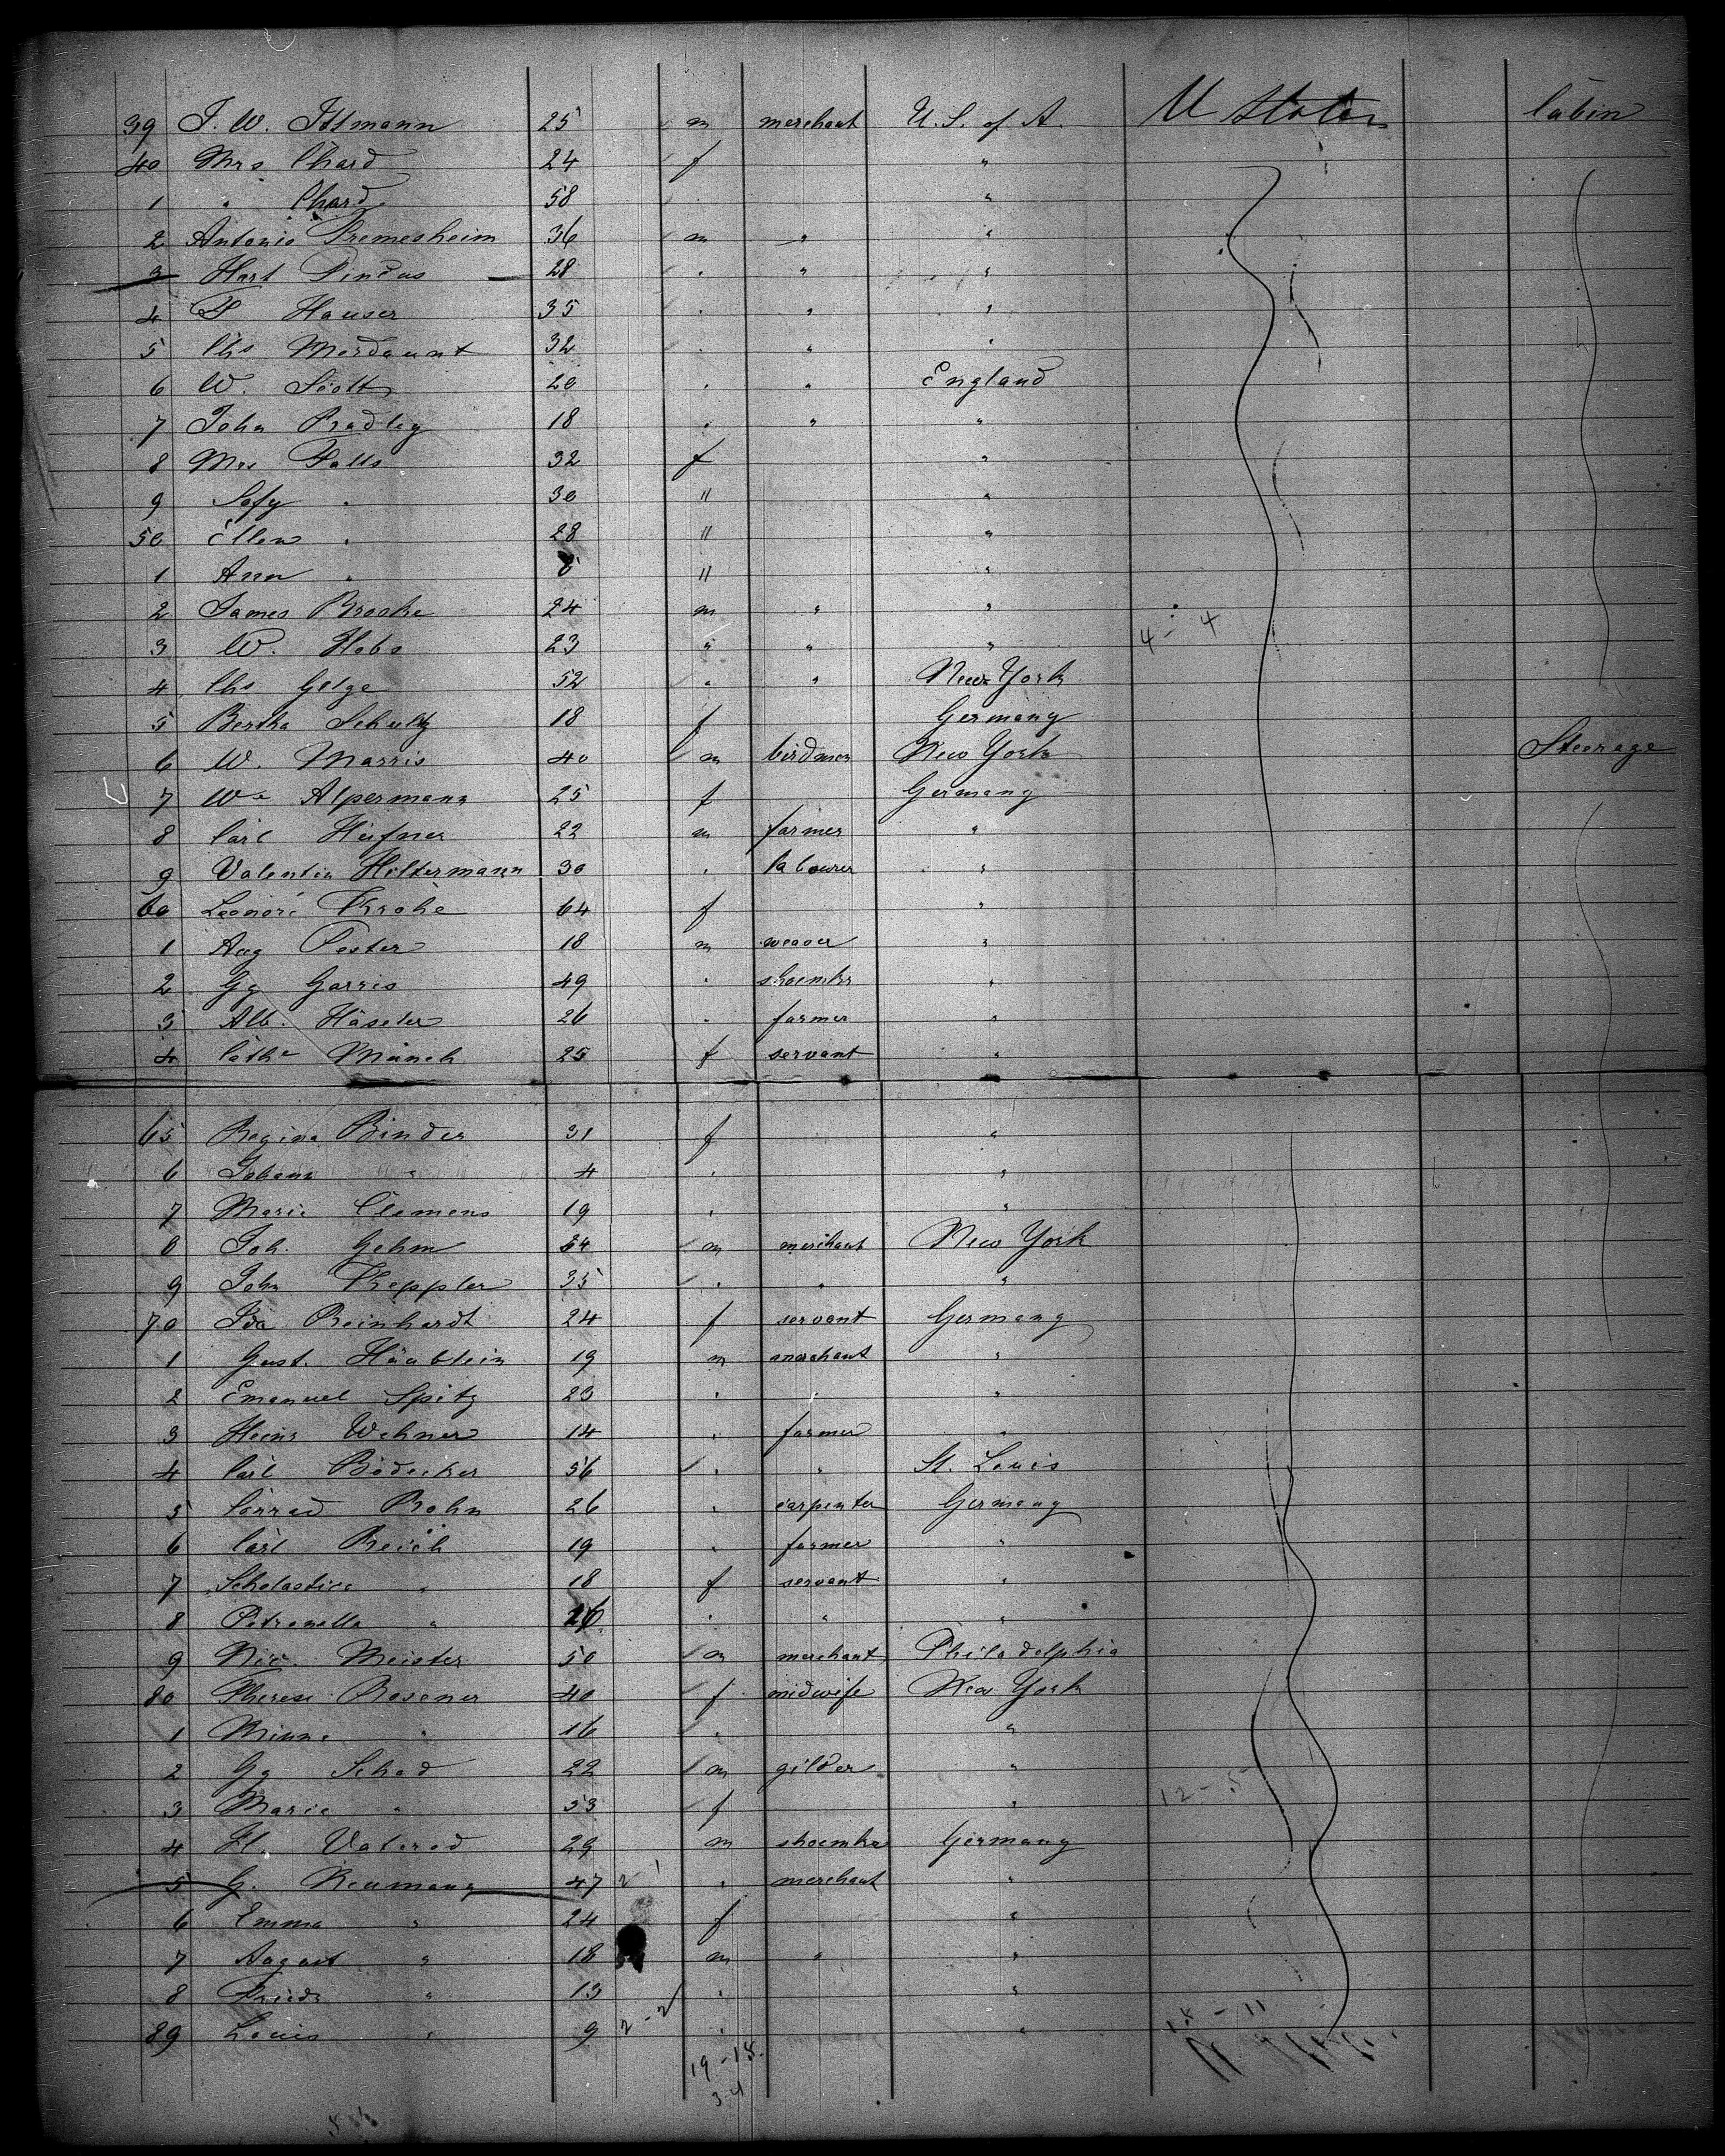 39 J. W. Ittmann 25 m merchant U. S. of A. U States Cabin
40 Mrs Chard 24 f "
1 " Chard 58 " "
2 Antonio Premesheim 36 m " "
3 Hart Pincus 28 " " "
4 P Hauser 35 " " "
5 Chs Mordaunt 32 " " "
6 W. Scott 20 " " England
7 John Bradley 18 " " "
8 Mrs Falls 32 f "
9 Sofy " 30 " "
50 Ellen " 28 " "
1 Ann " " "
2 James Brooke 24 m " "
3 W. Hobs 23 " " " 4-4
4 Chs Gelge 52 " " New York
5 Bertha Schultz 18 f Germany
6 W. Marris 40 m birdman New York Steerage
7 We Alpermann 25 f Germany
8 Carl Hüfner 22 m farmer "
9 Valentin Hiltermann 30 " labourer "
60 Leonore Krohe 64 f "
1 Aug Pester 18 m weaver "
2 Gg Garris 49 " shoemkr "
3 Alb. Häseler 26 " farmer "
4 Cathe Münch 25 f servant "
65 Regina Binder 31 f "
6 Johann " 4 " "
7 Marie Clemens 19 " "
8 Joh. Gehm 24 m merchant New York
9 John Keppler 35 " " "
70 Ida Reinhardt 24 f servant Germany
1 Gust. Häublein 19 m merchant "
2 Emanuel Spitz 23 " " "
3 Heinr Wehner 14 " farmer "
4 Carl Bödecker 56 " " St. Louis
5 Conrad Rohn 26 " carpenter Germany
6 Carl Reich 19 " farmer "
7 Scholastica " 18 f servant "
8 Petronella " 26 " " "
9 Nic. Meister 50 m merchant Philadelphia
80 Therese Rosener 40 f midwife New York
1 Minna " 16 " "
2 Gg Schad 22 m gilder "
3 Marie " 53 f " 12-5
4 H. Vaterod 29 m shoemkr Germany
5 G. Neumann 47 " merchant "
6 Emma " 24 f "
7 August " 18 m " "
8 Friedr " 13 " "
89 Louis " 9 2-2 " "
19-15.